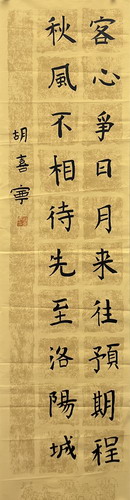 客心爭日月来往預期程
秋風不相待先至洛陽城
胡喜寧